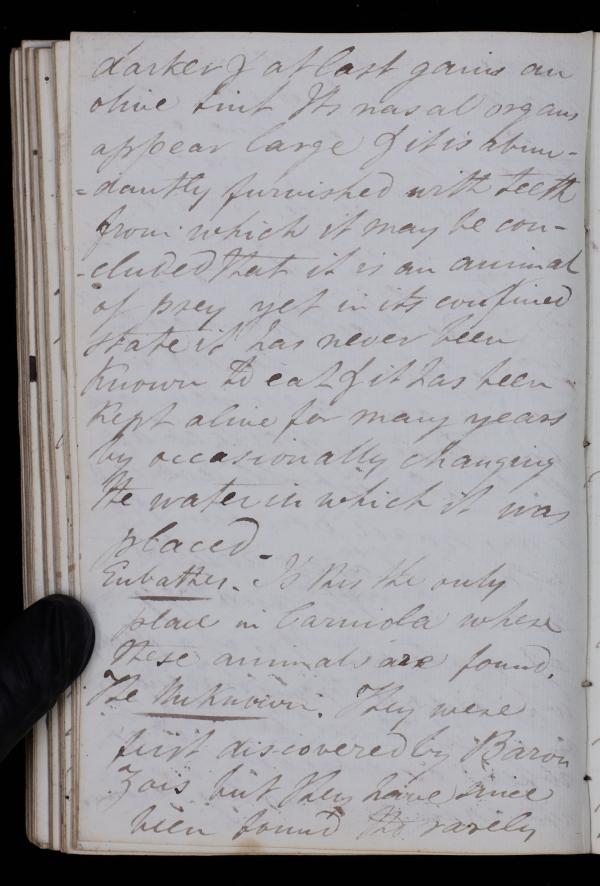 darker & at last gains an
olive tint Its nasal organs
appear large & it is abun-
=dantly furnished with teeth
from which it may be con-
-cluded that it is an animal
of prey yet in its confined
state it has never been
known to eat & it has been
kept alive for many years
by occasionally changing
the water in which it was
placed -
Eubathes. Is this the only
place in Carniola where
these animals are found.
The Unknown. They were
first discovered by Baron
Zois but they have since
been found tho rarely